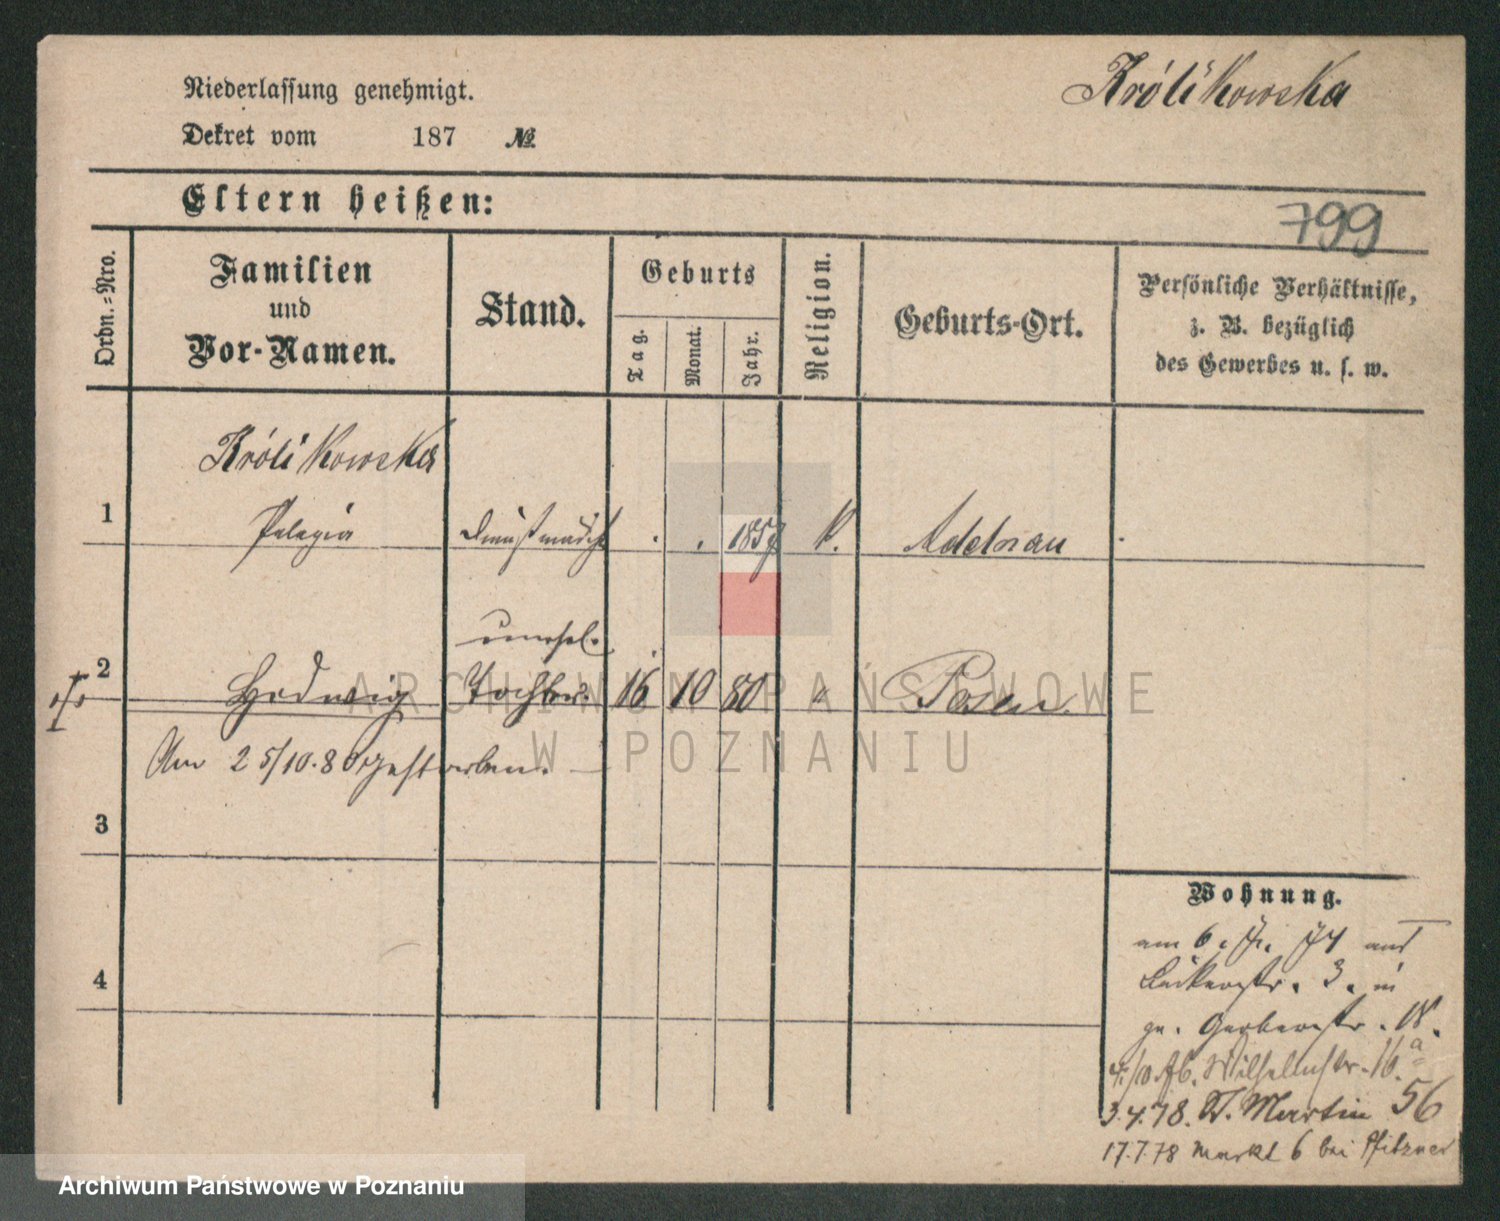 Niederlassung genehmigt.
Królikowska
Dekret vom 187 №
Eltern heißen:
799
Ordn.=Nro.
Familien
und
Vor-Namen.
Stand.
Geburts
Tag.
Monat.
Jahr.
Religion.
Geburts-Ort.
Persönliche Verhältnisse,
z. B. bezüglich
des Gewerbes u. s. w.
Królikowska
1 Pelagia Dienstmädch 1857 k. Adelnau
unehel.
2 Hedwig Tochter. 16 10 80 " Posen
Am 25/10.80 gestorben.
3
4
Wohnung.
am 6. aus
3. in
gr. Gerberstr. 18.
4/10. 76. Wilhelmstr. 16.a
3.4.78. St. Martin 56
17.7.78 Markt 6 bei Pfitzner
ARCHIWUM PAŃSTWOWE
W POZNANIU
Archiwum Państwowe w Poznaniu